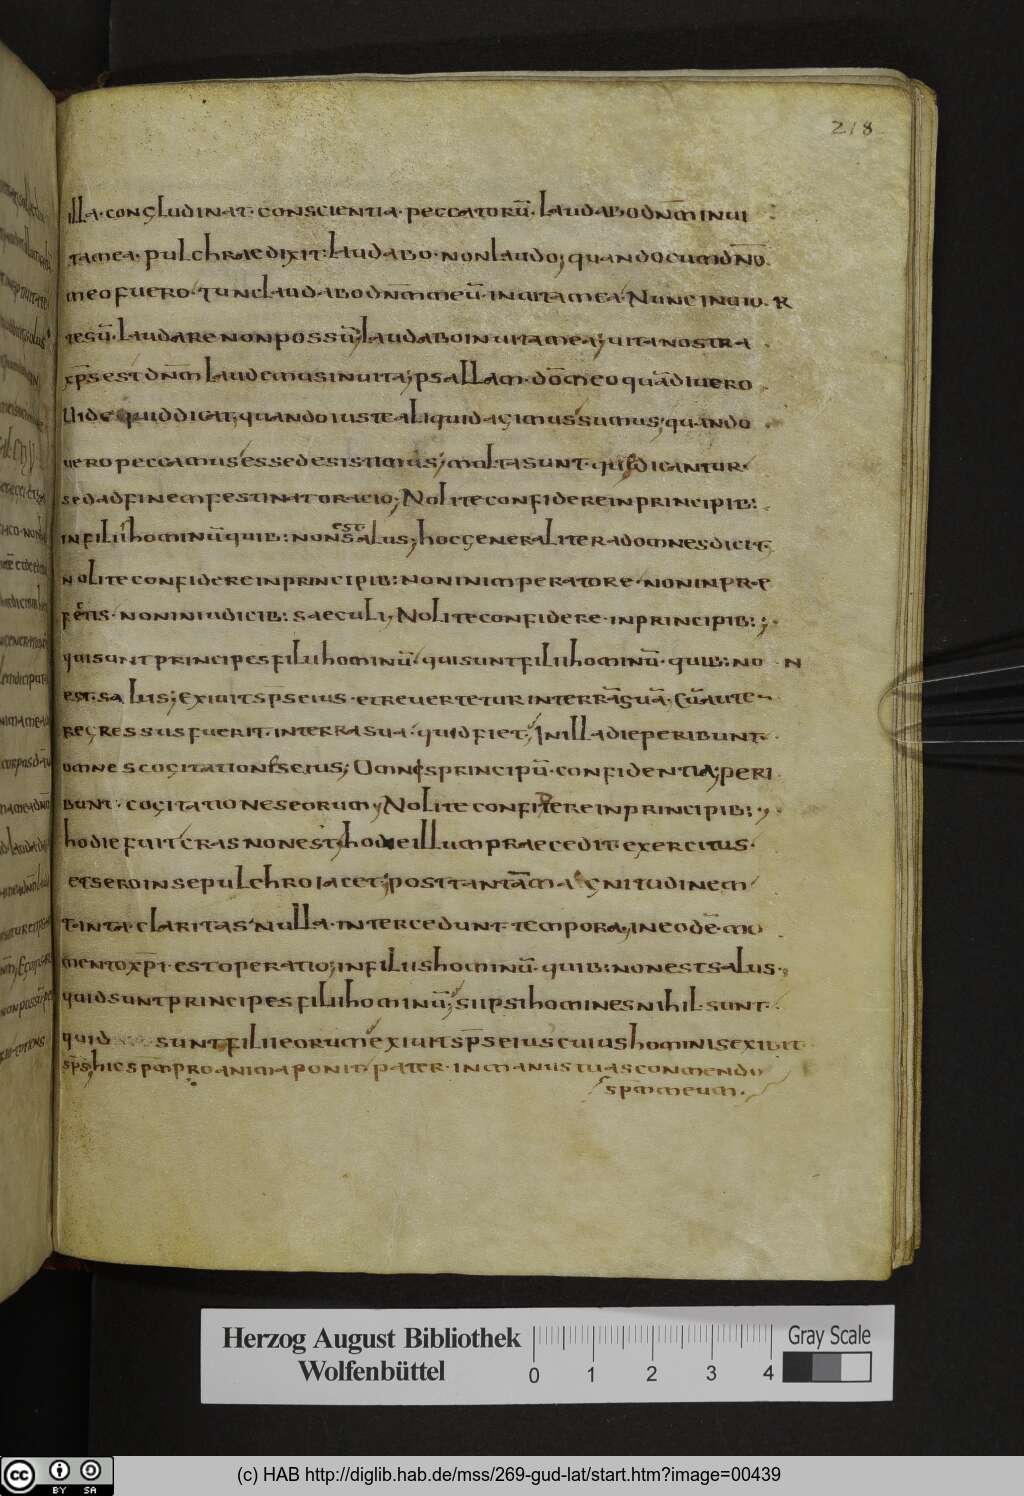 218
illa. concludinat. conscientia. peccatorū. Laudabo dnm̄ in ui
ta mea. pulchrae dixit: laudabo. non laudo; quando cum dn̄o
meo fuero. tunc laudabo dnm̄ meū. in uita mea. Nunc in uiv. R
tesū. laudare non possū; laudabo in uita mea; uita nostra
xp̄s est dnm̄ laudemus in uita; psallam. dō meo quādiu ero
Uide quid dicat; quando iuste aliquid agimus sumus; quando
uero peccamus esse desistimus; multa sunt. que dicantur.
sed ad finem festinat oracio; Nolite confidere in principib:
in filii hominū quib: non est salus; hoc generaliter ad omnes dicit.
nolite confidere in principib: non in imperatore. non in pre
fectis. non in iudicib: saeculi; Nolite confidere. in principib: ;.
qui sunt principes filii hominū. qui sunt filii hominū. quib: no n
est. salus; exiuit sps eius. et reuertetur in terrā suā. Cū aute
regressus fuerit. in terra sua. quid fiet; In illa die peribunt.
omnes cogitationes eius; Omnes principū. confidentia; peri
bunt. cogitationes eorum; Nolite confidere in principib: ;.
hodie fuit cras non est; hodie illum praecedit exercitus.
et sero in sepulchro iacet; post tantam magnitudinem
tanta claritas nulla. intercedunt tempora; in eodē mo
mento xp̄i. est operatio; in filiis hominū. quib: non est salus.
quid sunt principes filii hominū; si ipsi homines nihil. sunt.
quid sunt filii eorum exiuit sp̄s eius cuius hominis exiuit
sp̄s; hic spm̄ pro anima ponit pater. in manus tuas conmendo
spm̄ meum.
Herzog August Bibliothek
Wolfenbüttel
0 1 2 3 4
Gray Scale
cc BY SA
(c) HAB http://diglib.hab.de/mss/269-gud-lat/start.htm?image=00439